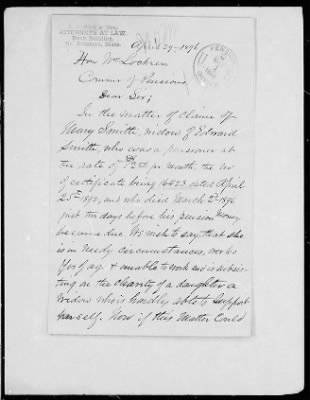 ATTORNEYS AT LAW,
April 29 - 1896
Hon Wm Lochren
Commr of Pensions
Dear Sir;
In the Matter of Claime of
Mary Smith, widow of Edward
Smith, who was a pensioner at
the rate of $12.00 pr Month the No
of certificate being 16423 dated April
25th 1892, and who died March 2d 1896
just ten days before his pension money
became due. We wish to say, that she
is in Needy circumstances, over 60
Yrs of ag & unable to work and is subsis-
ting on the Charity of a daughter a
widow who is hardly able to support
herself. Now if this Matter Could